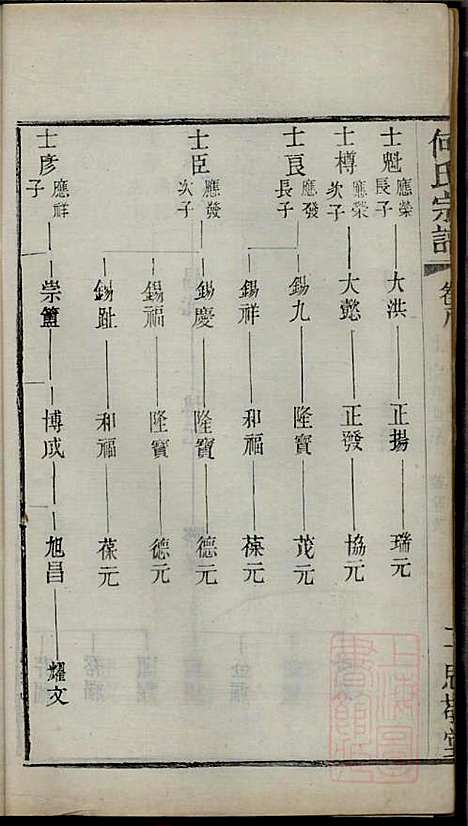 何氏宗譜
卷
士魁 應榮長子 大洪 正揚 瑞元
士樽 應榮次子 大懿 正發 協元
士良 應發長子 錫九 隆寶 茂元
錫祥 和福 葆元
士臣 應發次子 錫慶 隆寶 德元
錫福 隆寶 德元
錫趾 和福 葆元
士彦 應祥子 崇簠 博成 旭昌 耀文
上海圖書館藏